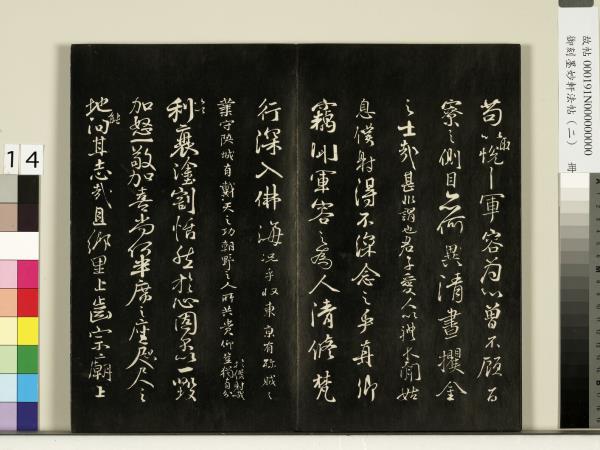 故帖 000191N000000000
御刻墨妙軒法帖（二） 冊
苟以取悅軍容為心曾不顧百
寮之側目亦何異清晝攫金
之士哉甚非謂也君子愛人以禮不聞姑
息僕射得不深念之乎真卿
竊聞軍容之為人清修梵
行深入佛海況乎收東京有殄賊之
業守陝城有戴天之功朝野之人所共貴仰豈獨有分於僕射哉
加以利衰塗割恬然於心固不以一毀
加怒一敬加喜尚何半席之座咫尺之
地能汩其志哉且鄉里上齒宗廟上
14